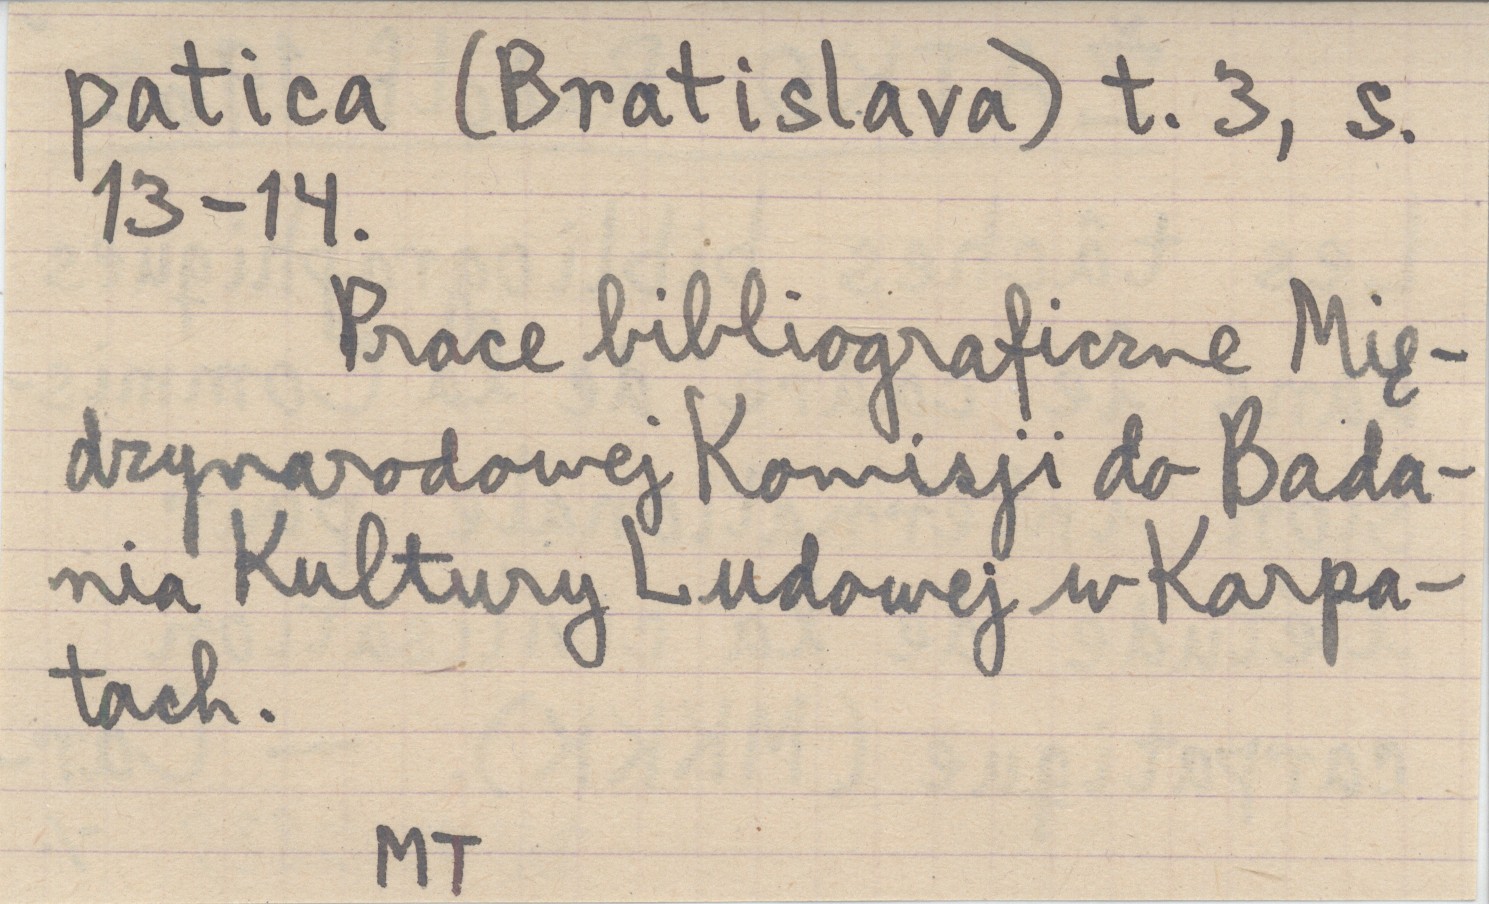 patica (Bratislava) t. 3, s.
13-14.
Prace bibliograficzne Mię-
dzynarodowej Komisji do Bada-
nia Kultury Ludowej w Karpa-
tach.
MT